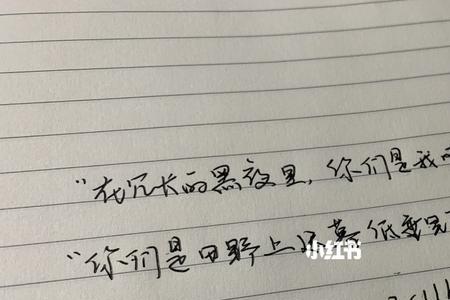 "在冗长的黑夜里,你们是我
"你们是田野上 低
小红书